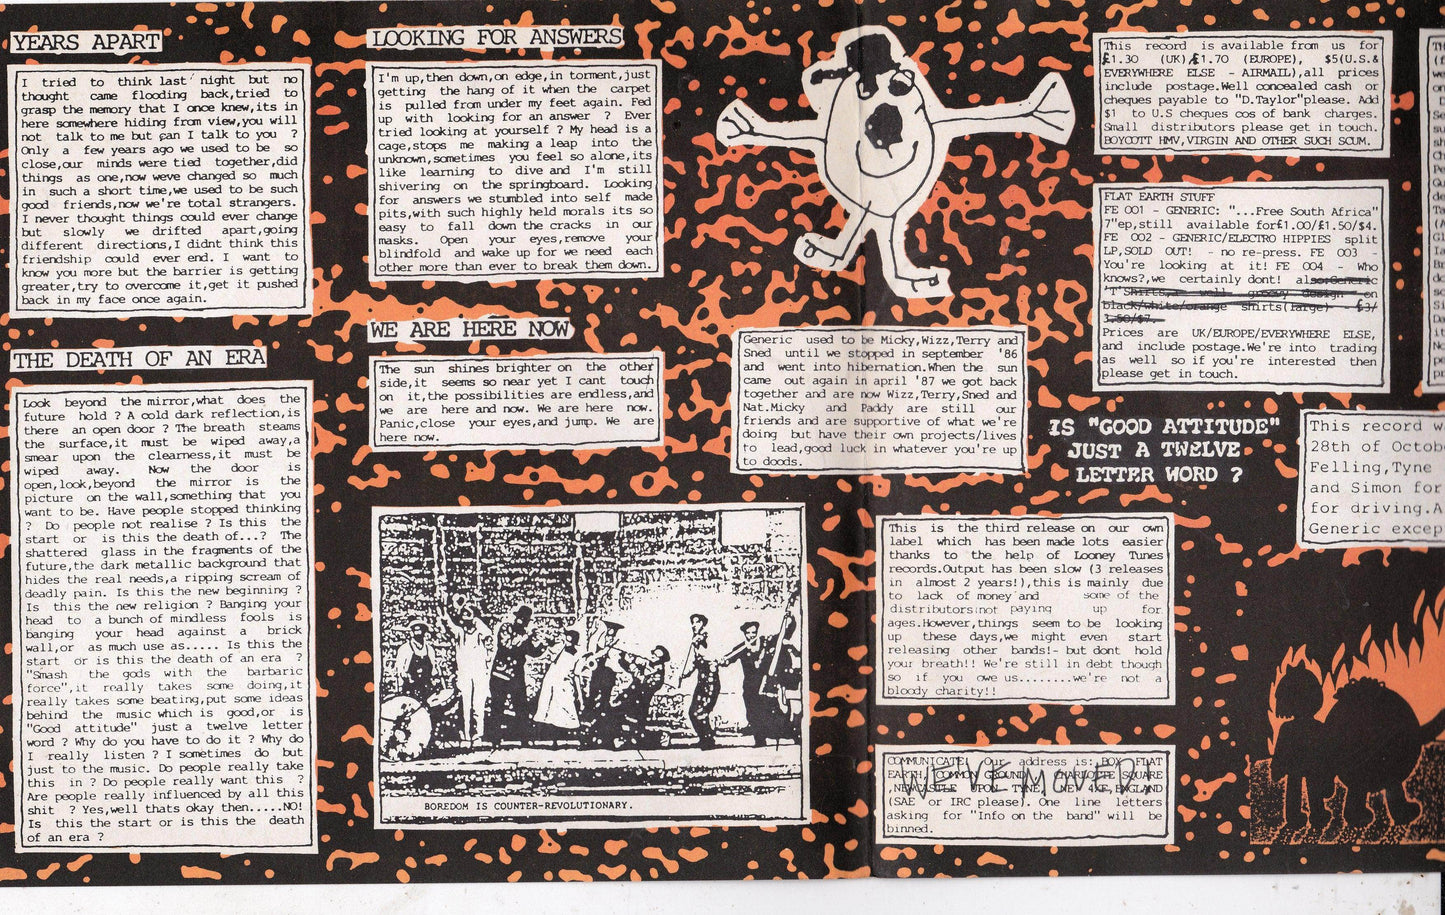 YEARS APART
I tried to think last night but no
thought came flooding back,tried to
grasp the memory that I once knew,its in
here somewhere hiding from view,you will
not talk to me but can I talk to you ?
Only a few years ago we used to be so
close,our minds were tied together,did
things as one,now weve changed so much
in such a short time,we used to be such
good friends,now we're total strangers.
I never thought things could ever change
but slowly we drifted apart,going
different directions,I didnt think this
friendship could ever end. I want to
know you more but the barrier is getting
greater,try to overcome it,get it pushed
back in my face once again.
THE DEATH OF AN ERA
Look beyond the mirror,what does the
future hold ? A cold dark reflection,is
there an open door ? The breath steams
the surface,it must be wiped away,a
smear upon the clearness,it must be
wiped away. Now the door is
open,look,beyond the mirror is the
picture on the wall,something that you
want to be. Have people stopped thinking
? Do people not realise ? Is this the
start or is this the death of...? The
shattered glass in the fragments of the
future,the dark metallic background that
hides the real needs,a ripping scream of
deadly pain. Is this the new beginning ?
Is this the new religion ? Banging your
head to a bunch of mindless fools is
banging your head against a brick
wall,or as much use as..... Is this the
start or is this the death of an era ?
"Smash the gods with the barbaric
force",it really takes some doing,it
really takes some beating,put some ideas
behind the music which is good,or is
"Good attitude" just a twelve letter
word ? Why do you have to do it ? Why do
I really listen ? I sometimes do but
just to the music. Do people really take
this in ? Do people really want this ?
Are people really influenced by all this
shit ? Yes,well thats okay then.....NO!
Is this the start or is this the death
of an era ?
LOOKING FOR ANSWERS
I'm up,then down,on edge,in torment,just
getting the hang of it when the carpet
is pulled from under my feet again. Fed
up with looking for an answer ? Ever
tried looking at yourself ? My head is a
cage,stops me making a leap into the
unknown,sometimes you feel so alone,its
like learning to dive and I'm still
shivering on the springboard. Looking
for answers we stumbled into self made
pits,with such highly held morals its so
easy to fall down the cracks in our
masks. Open your eyes,remove your
blindfold and wake up for we need each
other more than ever to break them down.
WE ARE HERE NOW
The sun shines brighter on the other
side,it seems so near yet I cant touch
on it,the possibilities are endless,and
we are here and now. We are here now.
Panic,close your eyes,and jump. We are
here now.
BOREDOM IS COUNTER-REVOLUTIONARY.
Generic used to be Micky,Wizz,Terry and
Sned until we stopped in september '86
and went into hibernation.When the sun
came out again in april '87 we got back
together and are now Wizz,Terry,Sned and
Nat.Micky and Paddy are still our
friends and are supportive of what we're
doing but have their own projects/lives
to lead,good luck in whatever you're up
to doods.
This record is available from us for
£1.30 (UK),£1.70 (EUROPE), $5(U.S.&
EVERYWHERE ELSE - AIRMAIL),all prices
include postage.Well concealed cash or
cheques payable to "D.Taylor"please. Add
$1 to U.S cheques cos of bank charges.
Small distributors please get in touch.
BOYCOTT HMV,VIRGIN AND OTHER SUCH SCUM.
FLAT EARTH STUFF
FE 001 - GENERIC: "...Free South Africa"
7"ep,still available for£1.00/£1.50/$4.
FE 002 - GENERIC/ELECTRO HIPPIES split
LP,SOLD OUT! - no re-press. FE 003 -
You're looking at it! FE 004 - Who
knows?,we certainly dont! also Generic
'T'Shirts, well groovy design on
black/white/orange shirts(large) £3/
3.50/$7.
Prices are UK/EUROPE/EVERYWHERE ELSE,
and include postage.We're into trading
as well so if you're interested then
please get in touch.
IS "GOOD ATTITUDE"
JUST A TWELVE
LETTER WORD ?
This record w
28th of Octob
Felling,Tyne
and Simon for
for driving.A
Generic excep
This is the third release on our own
label which has been made lots easier
thanks to the help of Looney Tunes
records.Output has been slow (3 releases
in almost 2 years!),this is mainly due
to lack of money and some of the
distributors not paying up for
ages.However,things seem to be looking
up these days,we might even start
releasing other bands!- but dont hold
your breath!! We're still in debt though
so if you owe us........we're not a
bloody charity!!
COMMUNICATE! Our address is: BOX FLAT
EARTH, COMMON GROUND, CHARLOTTE SQUARE
,NEWCASTLE UPON TYNE, ENGLAND
WE'VE MOVED.
(SAE or IRC please). One line letters
asking for "Info on the band" will be
binned.